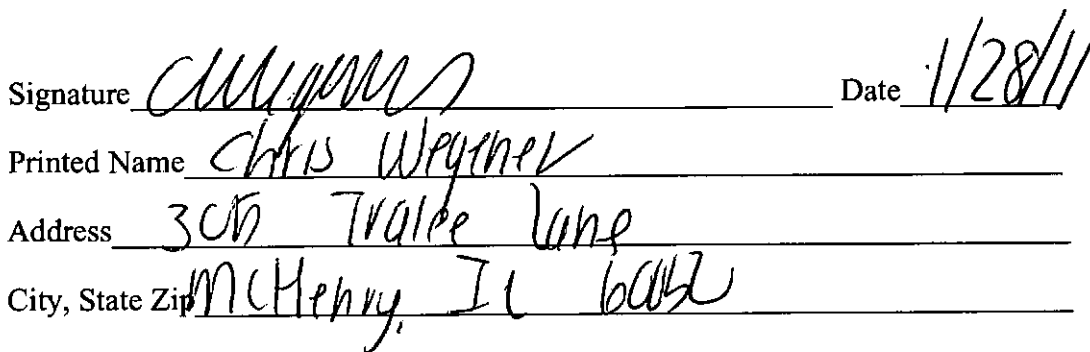 Signature Date 1/28/11
Printed Name Chris Wegener
Address Tralee Lane
City, State Zip McHenry, IL